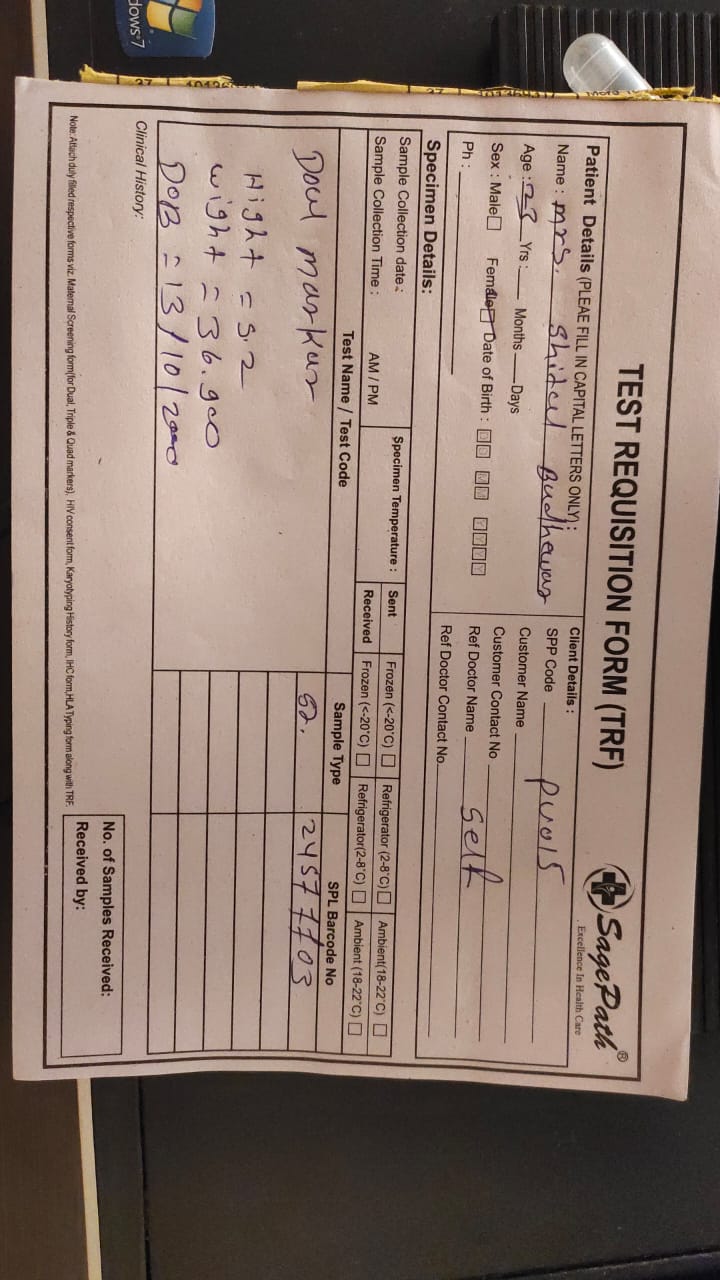 TEST REQUISITION FORM (TRF)
SagePath®
Excellence In Health Care
Patient Details (PLEAE FILL IN CAPITAL LETTERS ONLY):
Name : Mrs. Shital Budhewar
Age : 23 Yrs : Months Days
Sex : Male Female Date of Birth : D D M M Y Y Y Y
Ph :
Client Details :
SPP Code PU015
Customer Name
Customer Contact No
Ref Doctor Name Self
Ref Doctor Contact No.
Specimen Details:
Sample Collection date :
Sample Collection Time : AM / PM
Specimen Temperature :
Sent Frozen (<-20°C) Refrigerator (2-8°C) Ambient(18-22°C)
Received Frozen (<-20°C) Refrigerator(2-8°C) Ambient (18-22°C)
Test Name / Test Code Sample Type SPL Barcode No
Doul markar 24577703
Hight = 5.2
wight = 36.900
DOB = 13/10/2000
Clinical History:
No. of Samples Received:
Received by:
Note: Attach duly filled respective forms viz. Maternal Screening form(for Dual, Triple & Quad markers), HIV consent form, Karyotyping History form, IHC form,HLA Typing form along with TRF.
dows 7